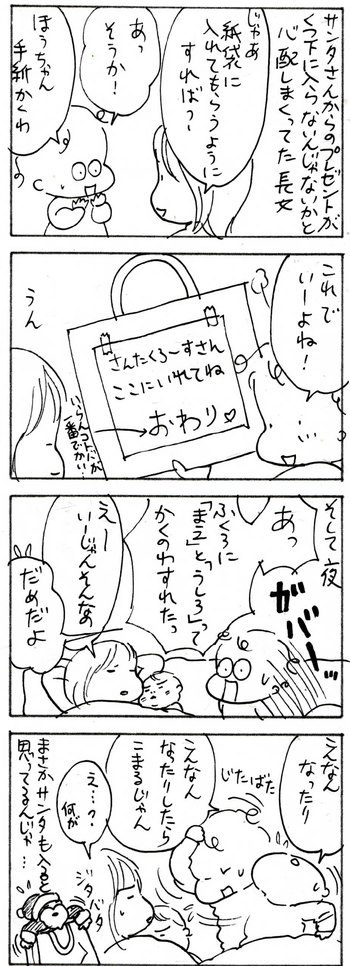 サンタさんからのプレゼントが
くつ下に入らないんじゃないかと
心配しまくってた長女
じゃあ
紙袋に
入れてもらうように
すればっ〜
あっ
そうか!
ほうちゃん
手紙かくわ
これで
いーよね!
さんたくろ〜すさん
ここにいれてね
おわり♡
うん
いらんコトバが
一番でかい…
そして夜
あっ
ガバーッ
ふくろに
「まえ」と「うしろ」って
かくのわすれたっ
えー
いーじゃんそんなの
だめだよ
こんなん
なったり
じたばた
こんなん
なったりしたら
こまるじゃん
え…?
何が
ジタバタ
まさかサンタも入ると
思ってるんじゃ…